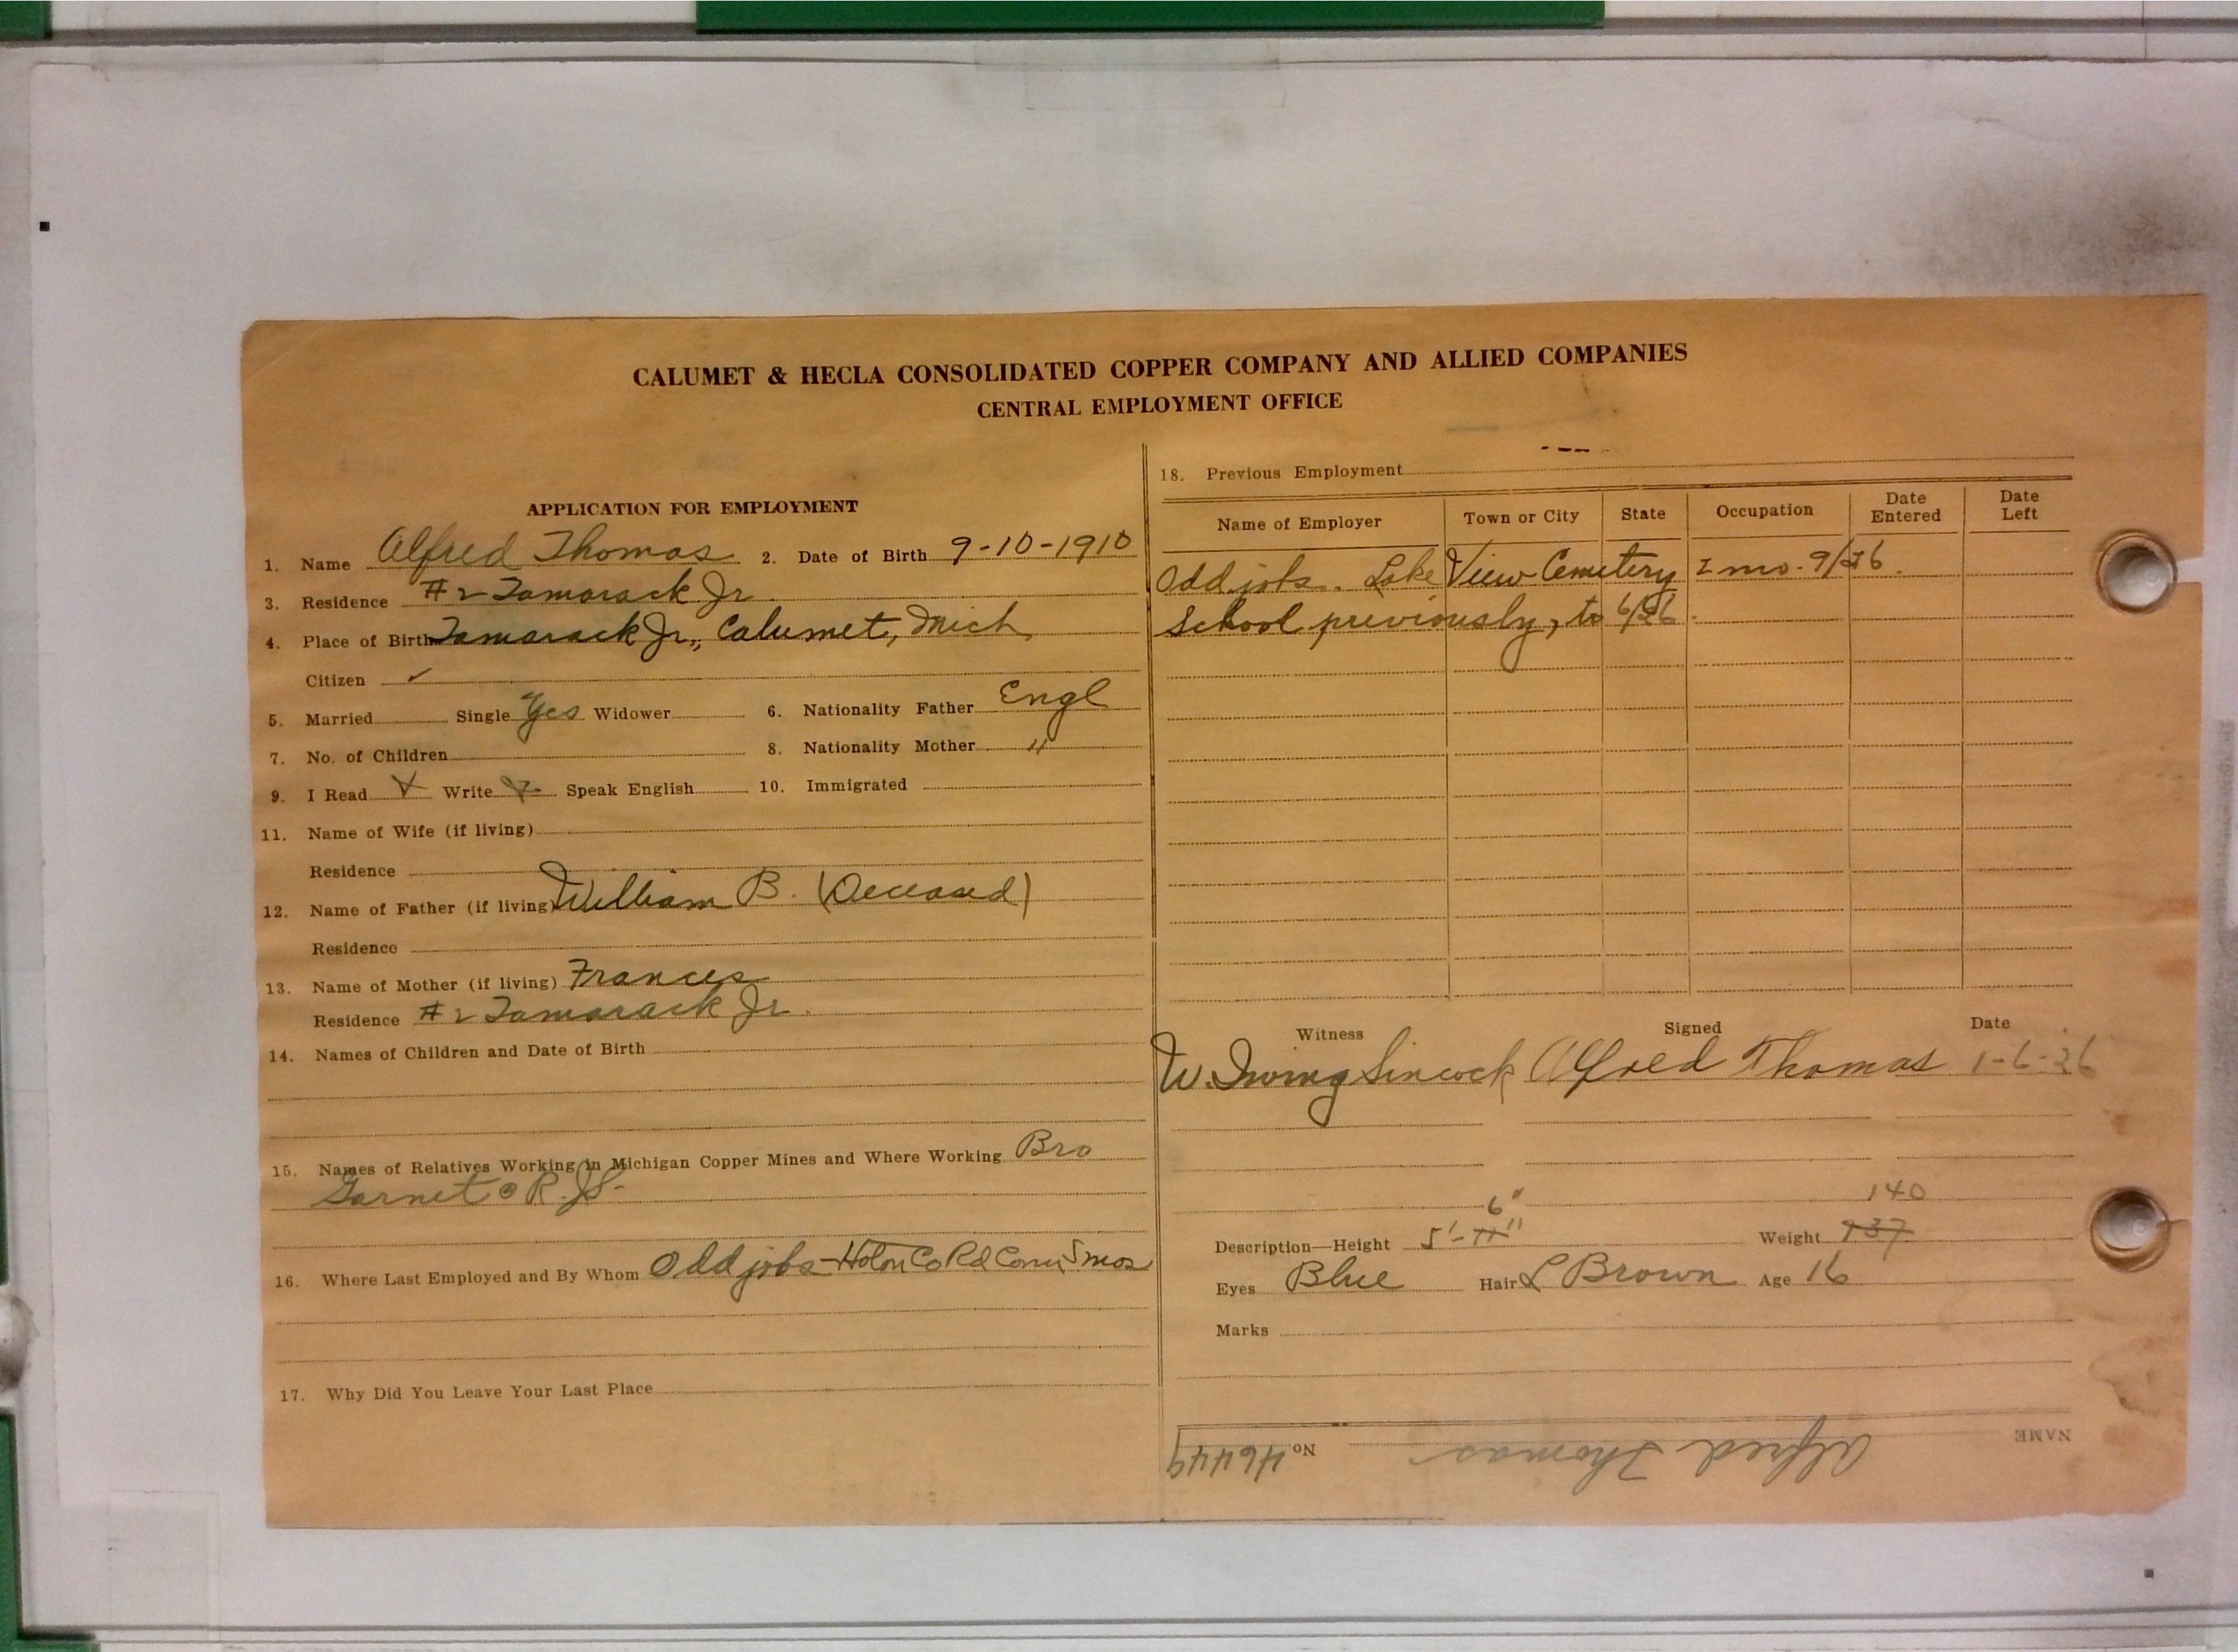 CALUMET & HECLA CONSOLIDATED COPPER COMPANY AND ALLIED COMPANIES
CENTRAL EMPLOYMENT OFFICE
APPLICATION FOR EMPLOYMENT
1. Name Alfred Thomas 2. Date of Birth 9-10-1910
3. Residence #2 Tamarack Jr.
4. Place of Birth Tamarack Jr., Calumet, Mich
Citizen ✓
5. Married Single Yes Widower 6. Nationality Father Engl
7. No. of Children 8. Nationality Mother "
9. I Read Write Speak English 10. Immigrated
11. Name of Wife (if living)
Residence
12. Name of Father (if living) William B. (Deceased)
Residence
13. Name of Mother (if living) Frances
Residence #2 Tamarack Jr.
14. Names of Children and Date of Birth
15. Names of Relatives Working in Michigan Copper Mines and Where Working Bro
Garnet @ R.
16. Where Last Employed and By Whom Odd jobs - Co Rd 5 mos
17. Why Did You Leave Your Last Place
18. Previous Employment
Name of Employer Town or City State Occupation Date Entered Date Left
Odd jobs. Lake View Cemetery 2 mo. 9/26.
School previously, to 6/26.
Witness Signed Date
W. Irving Sincock Alfred Thomas 1-6-26
6" 140
Description—Height 5'-11" Weight 137
Eyes Blue Hair L Brown Age 16
Marks
NAME Alfred Thomas No. 46449